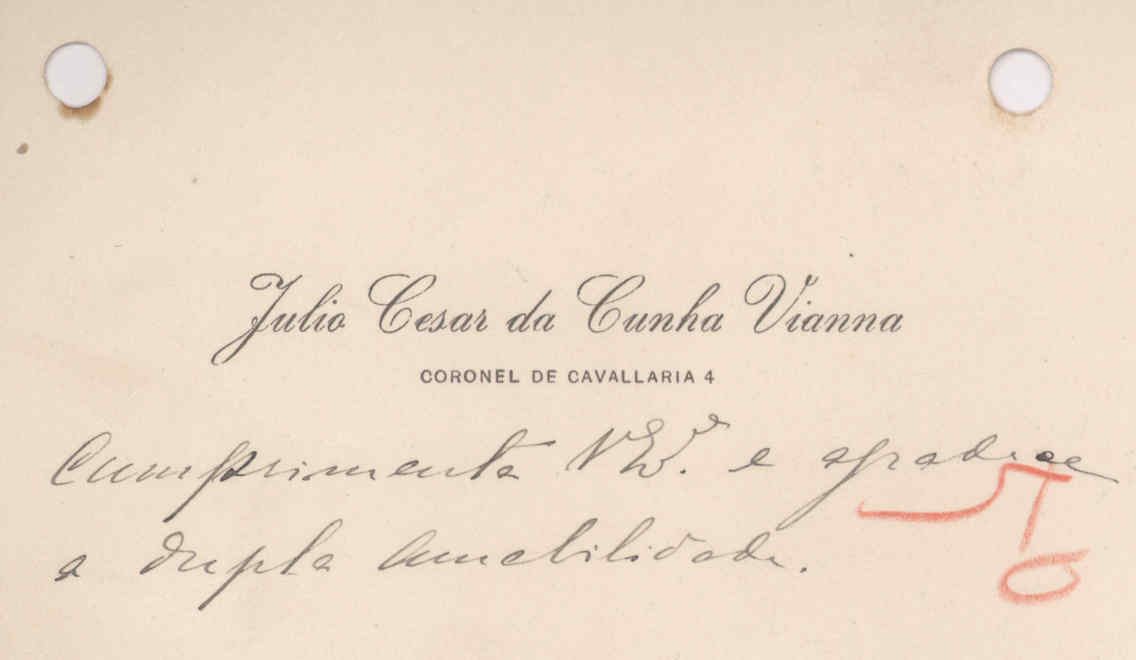 Julio Cesar da Cunha Vianna
CORONEL DE CAVALLARIA 4
Cumprimenta V. Ex.ª e agradece
a dupla amabilidade.